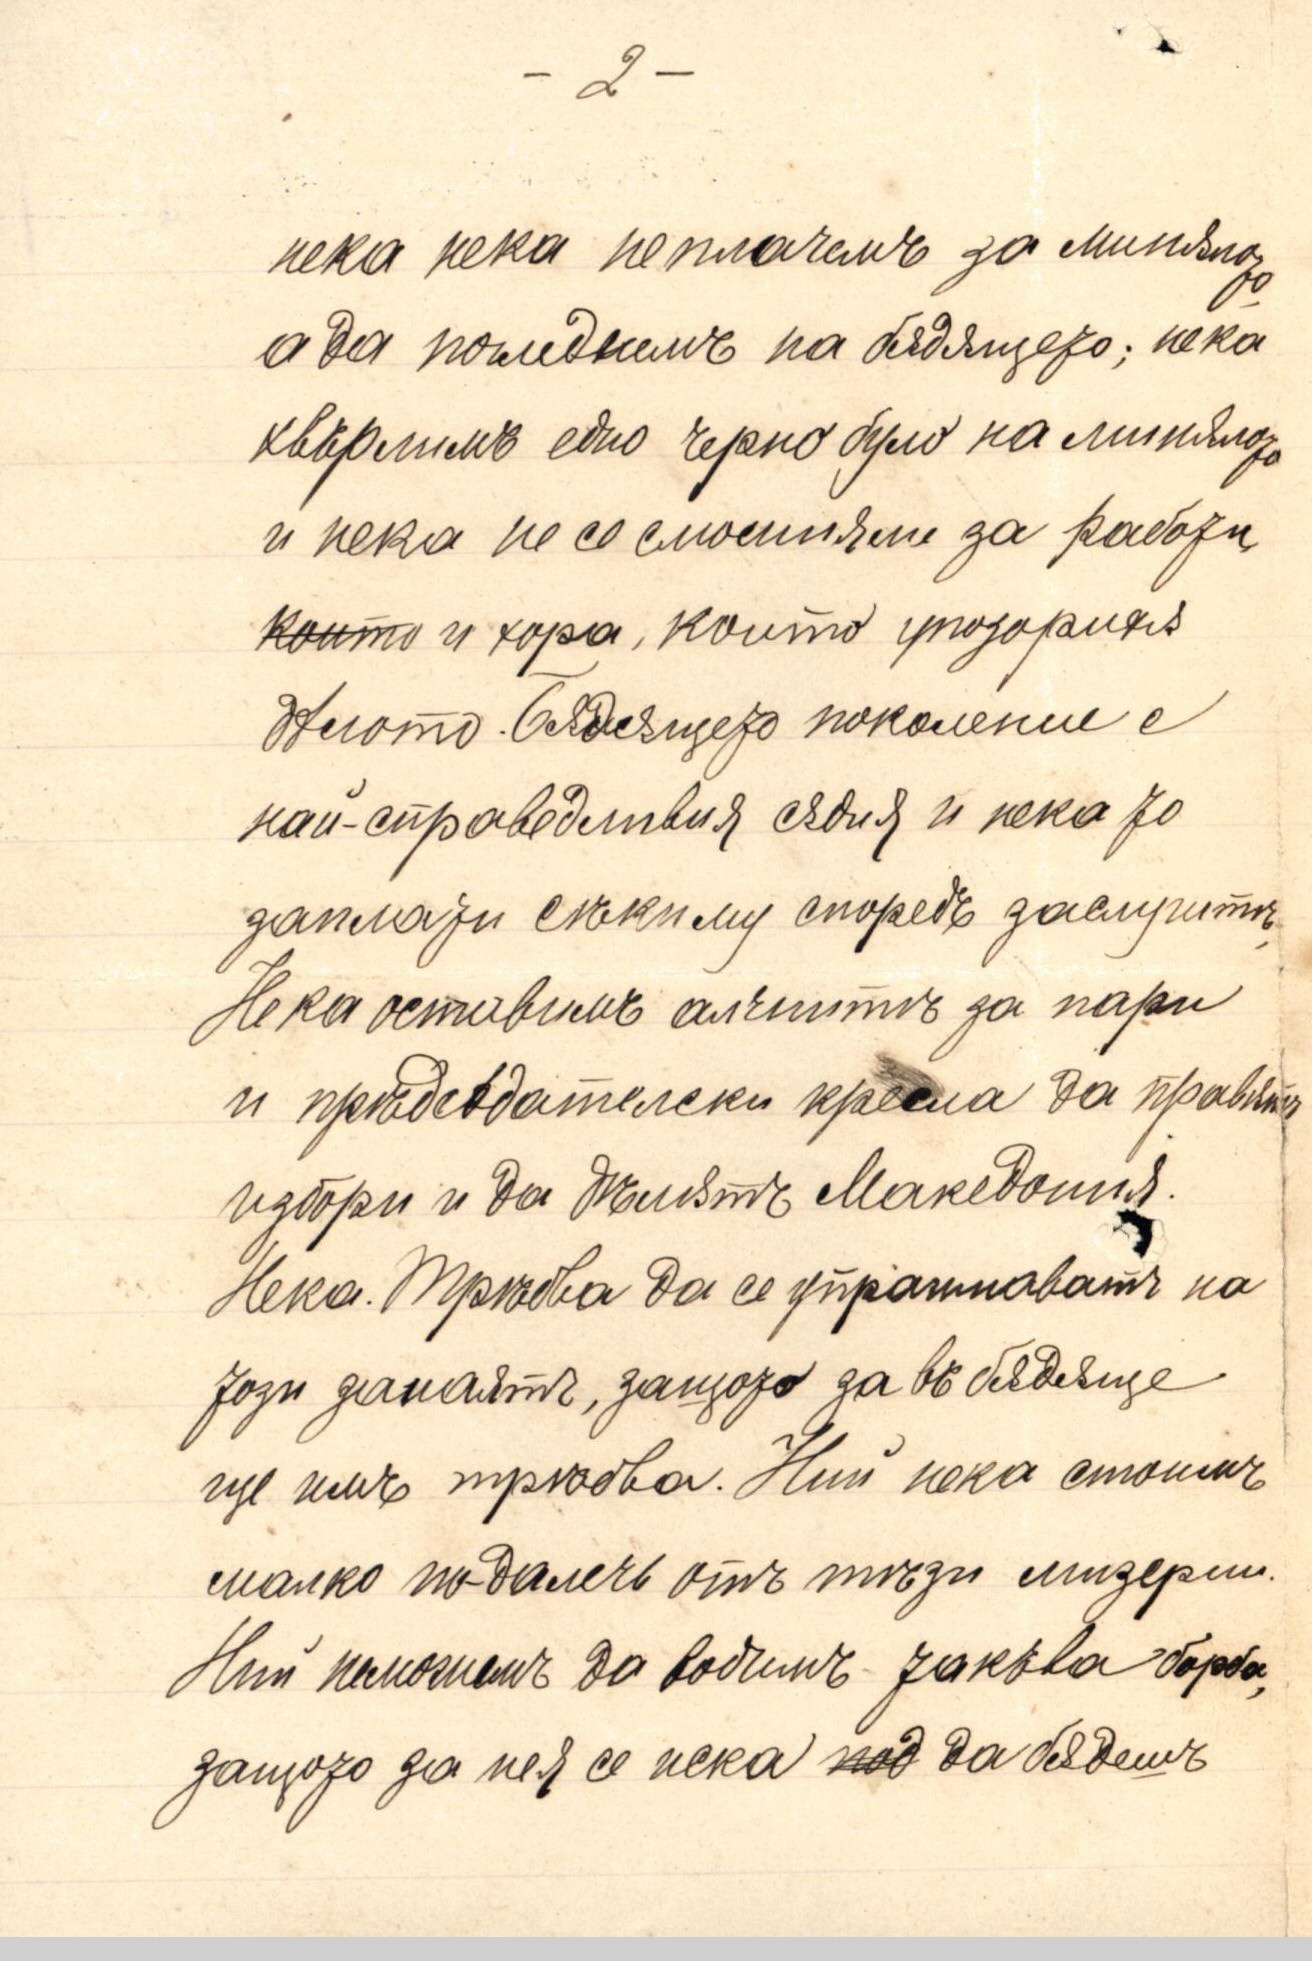 - 2 -
нека нека не плачемъ за минѫлото
а да погледнемъ на бѫдѫщето; нека
хвърлимъ едно черно було на минѫлото
и нека не се смоѭияме за работи,
които и хора, които упозорихѫ
дѣлото. Бѫдѫщето поколение е
най-справедливия сѫдия и нека то
заплати сѣкиму споредъ заслугитѣ.
Нека оставимъ алчнитѣ за пари
и прѣдсѣдателски кресла да правятъ
избори и да дѣлѭтъ Македония.
Нека. Трѣбва да се упражнаватъ на
този занаятъ, защото за въ бѫдѫще
ще имъ трѣбва. Ний нека стоимъ
малко по-далечь отъ тѣзи мизерии.
Ний неможемъ да водимъ такъва борба,
защото за нея се иска под да бѫдешъ